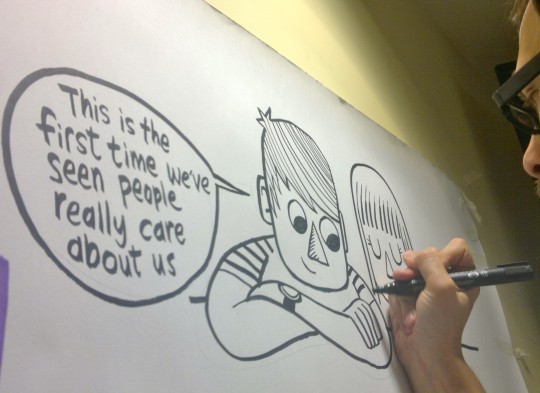 This is the
first time we've
seen people
really care
about us